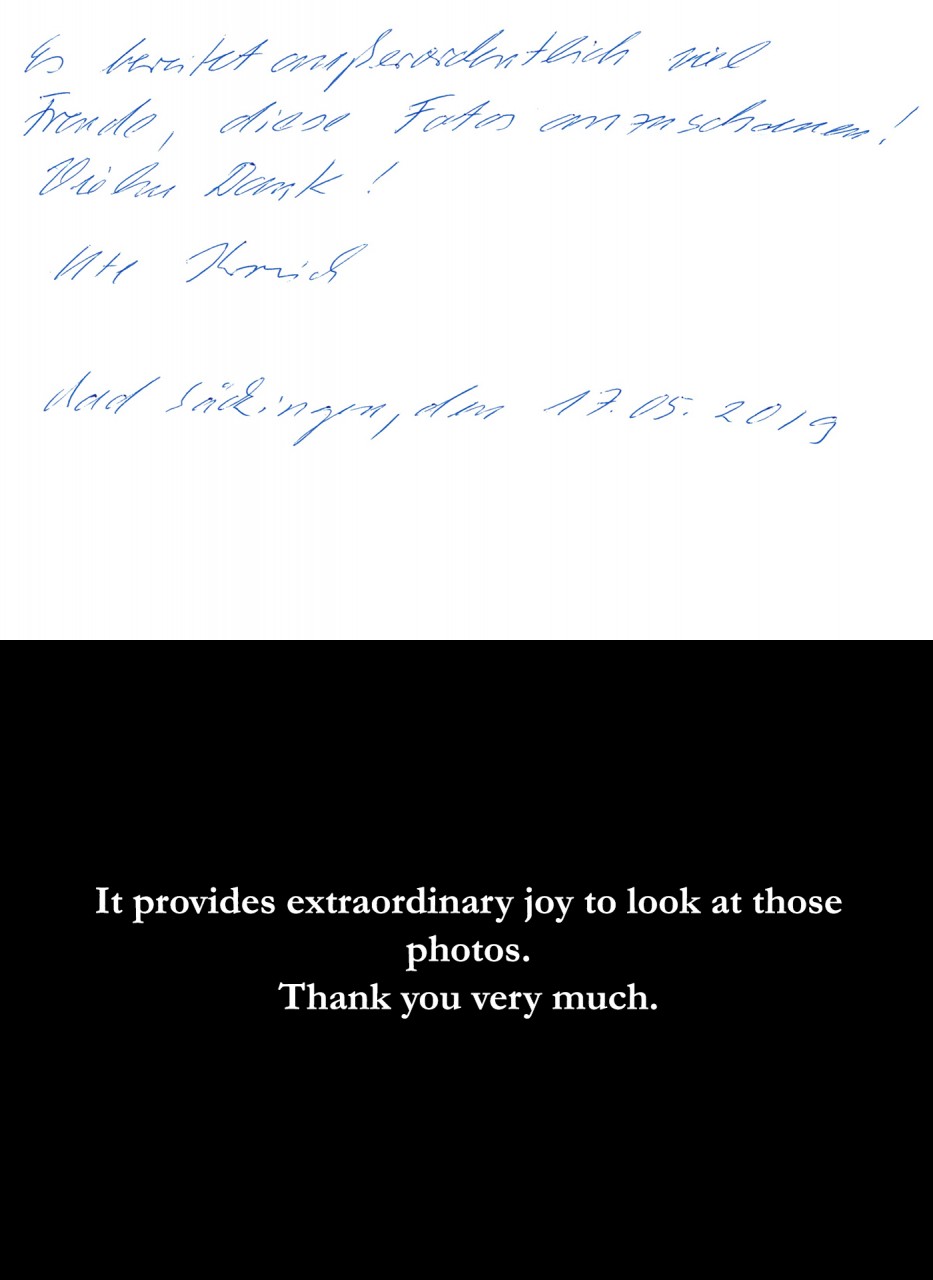 Es bereitet außerordentlich viel
Freude, diese Fotos anzuschauen!
Vielen Dank!
Ute
Bad Säckingen, den 17.05.2019
It provides extraordinary joy to look at those
photos.
Thank you very much.